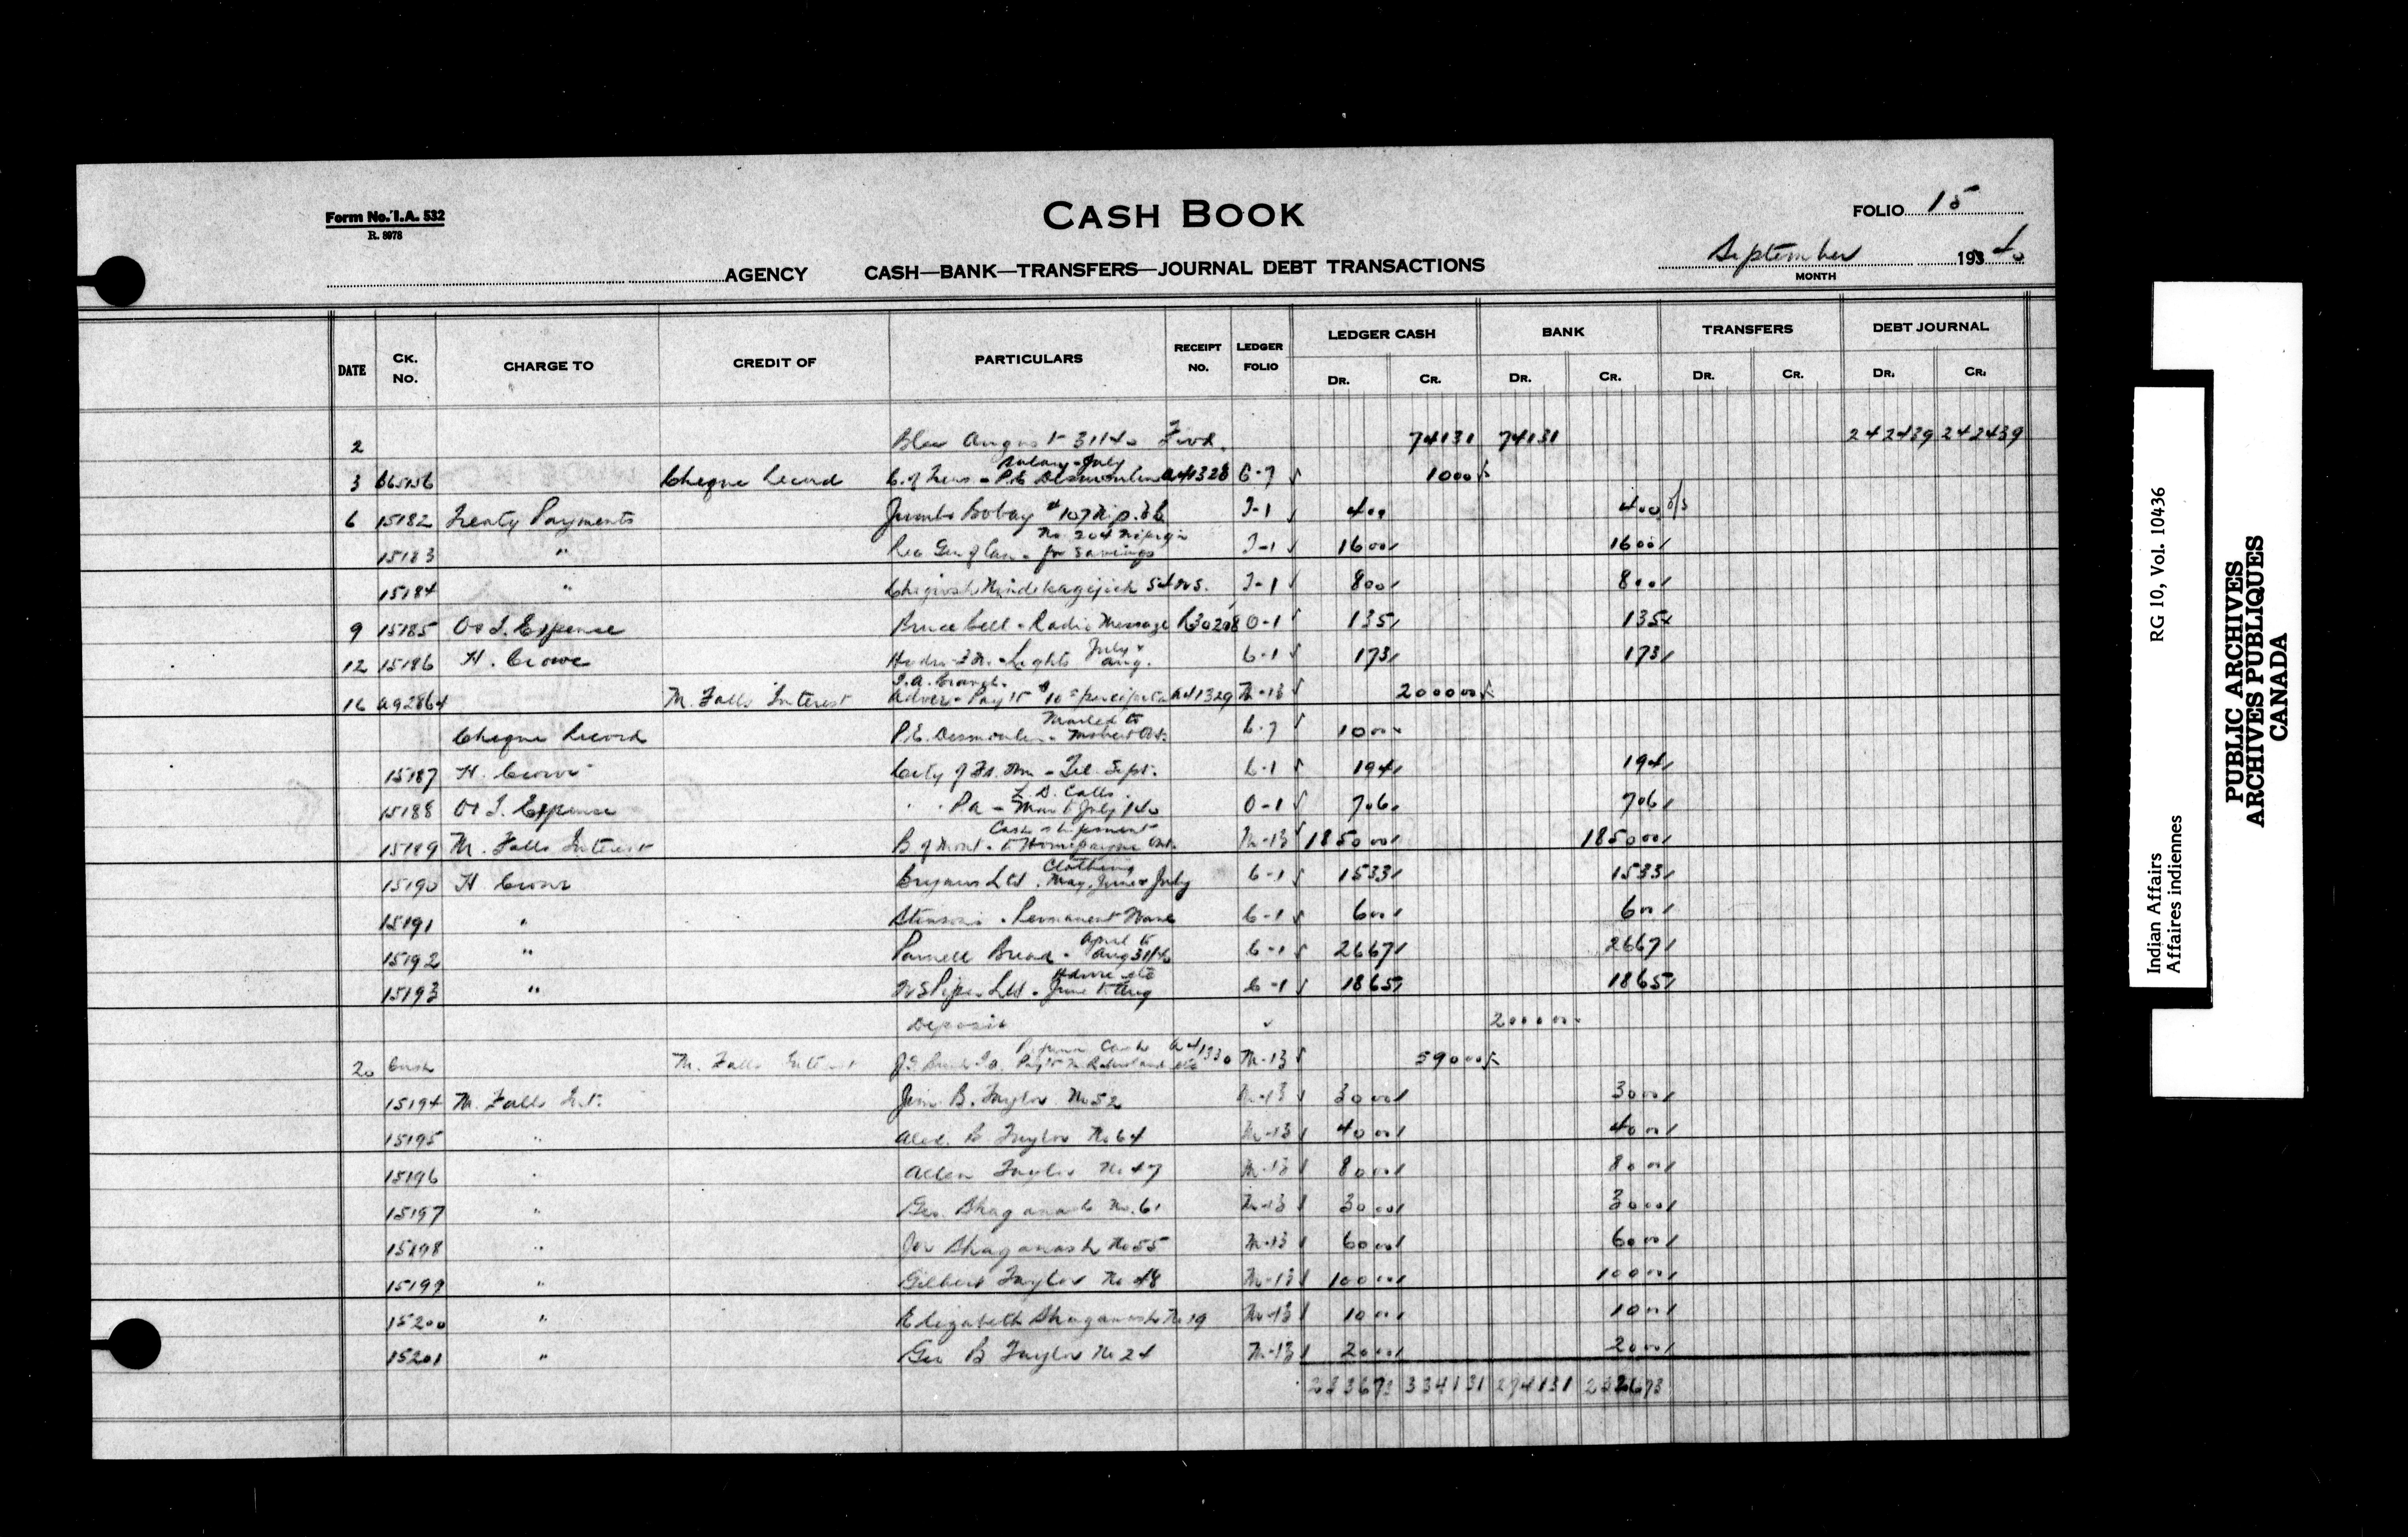 Form No. I.A. 532
R. 8978
CASH BOOK
FOLIO 15
AGENCY CASH—BANK—TRANSFERS—JOURNAL DEBT TRANSACTIONS
September 193 40
MONTH
DATE CK. No. CHARGE TO CREDIT OF PARTICULARS RECEIPT No. LEDGER FOLIO LEDGER CASH DR. CR. BANK DR. CR. TRANSFERS DR. CR. DEBT JOURNAL DR. CR.
2 August 31/40 Fwd. 741 31 741 31 2424 39 2424 39
3 Cheque Record Salary - July P.E. Desmoulin A41328 C-7 10 00
6 15182 Treaty Payments Jumbo Bobay #107 J-1 4 00 4 00 o/s
15183 " No 204 for Savings J-1 16 00 16 00
15184 " J-1 8 00 8 00
9 15185 O & I. Expense Bruce Bell - Radio Message 0-1 1 35 1 35
12 15186 H. Crowe Lights July & Aug. C-1 1 73 1 73
16 A92864 M. Falls Interest A41329 M-13 2000 00
Cheque Record P.E. Desmoulin - Mailed to Mobert Ont. C-7 10 00
15187 H. Crowe City of - Tel. Sept. C-1 1 94 1 94
15188 O & I. Expense " " L.D. Calls Mar to July /40 0-1 7 06 7 06
15189 M. Falls Interest B of Mont. - Cash shipment to Hornepayne Ont. M-13 1850 00 1850 00
15190 H Crowe Ltd. Clothing May, June & July C-1 15 33 15 33
15191 " Permanent Wave C-1 6 00 6 00
15192 " Parnell Bread - April to Aug 31/40 C-1 26 67 26 67
15193 " Ltd - June to Aug C-1 18 65 18 65
Deposit 2000 00
20 Cash M. Falls Interest Cash A41330 M-13 590 00
15194 M. Falls Int. Jim B. Taylor No 52 M-13 30 00 30 00
15195 " Alex. B Taylor No 64 M-13 40 00 40 00
15196 " Allen Taylor No 47 M-13 80 00 80 00
15197 " Geo. Shaganash No. 61 M-13 30 00 30 00
15198 " Joe Shaganash No 55 M-13 60 00 60 00
15199 " Gilbert Taylor No 48 M-13 100 00 100 00
15200 " Elizabeth Shaganash No 19 M-13 10 00 10 00
15201 " Geo B Taylor No 24 M-13 20 00 20 00
3341 31 2741 31
RG 10, Vol. 10436
Indian Affairs
Affaires indiennes
PUBLIC ARCHIVES
ARCHIVES PUBLIQUES
CANADA